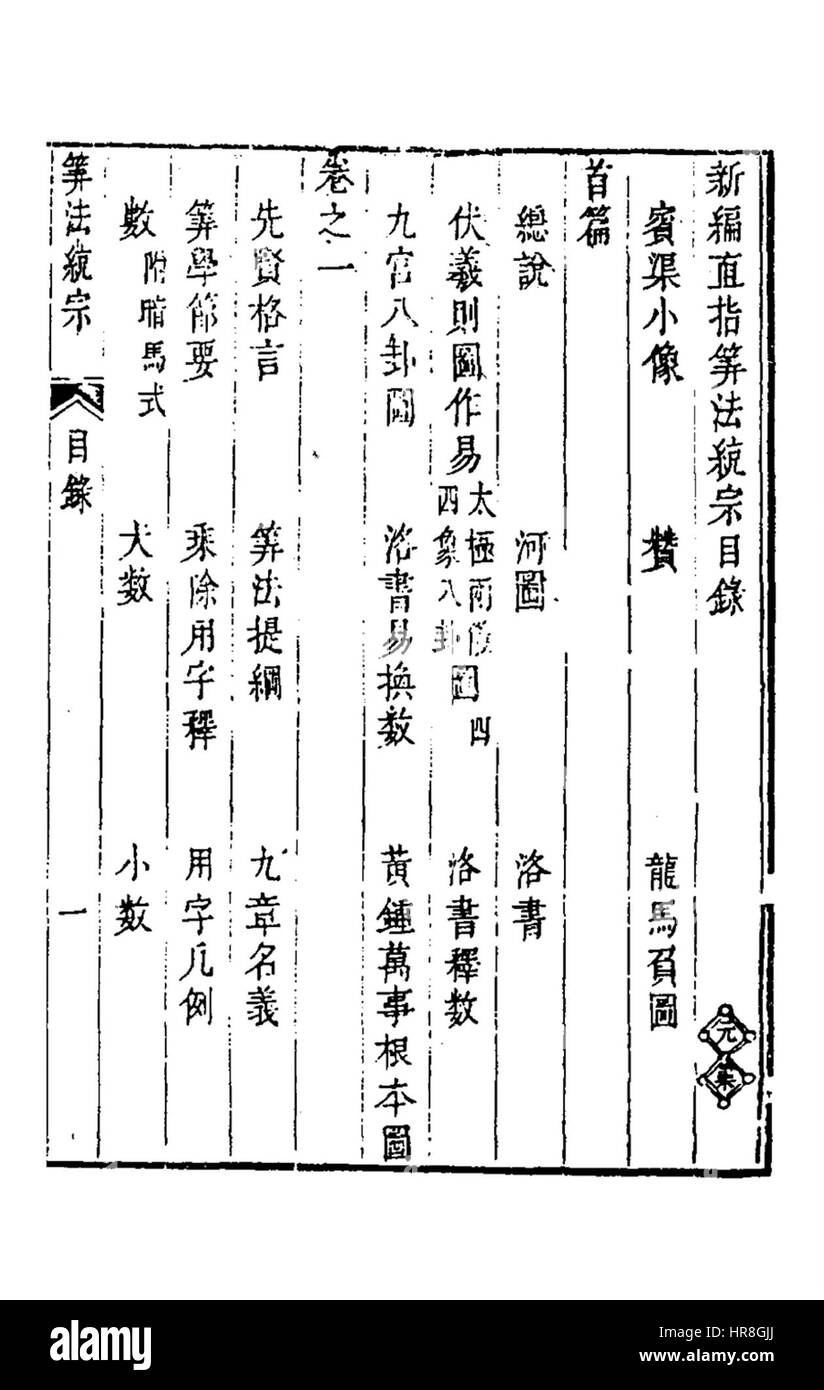 新編直指筭法統宗目錄 元集
賓渠小像 賛 龍馬負圖
首篇
總說 河圖 洛書
伏羲則圖作易 太極兩儀四象八卦圖 四 洛書釋數
九宮八卦圖 洛書易換數 黃鍾萬事根本圖
卷之一
先賢格言 筭法提綱 九章名義
筭學節要 乘除用字釋 用字凡例
數附暗馬式 大數 小數
筭法統宗 目錄 一
alamy
Image ID: HR8GJJ
www.alamy.com